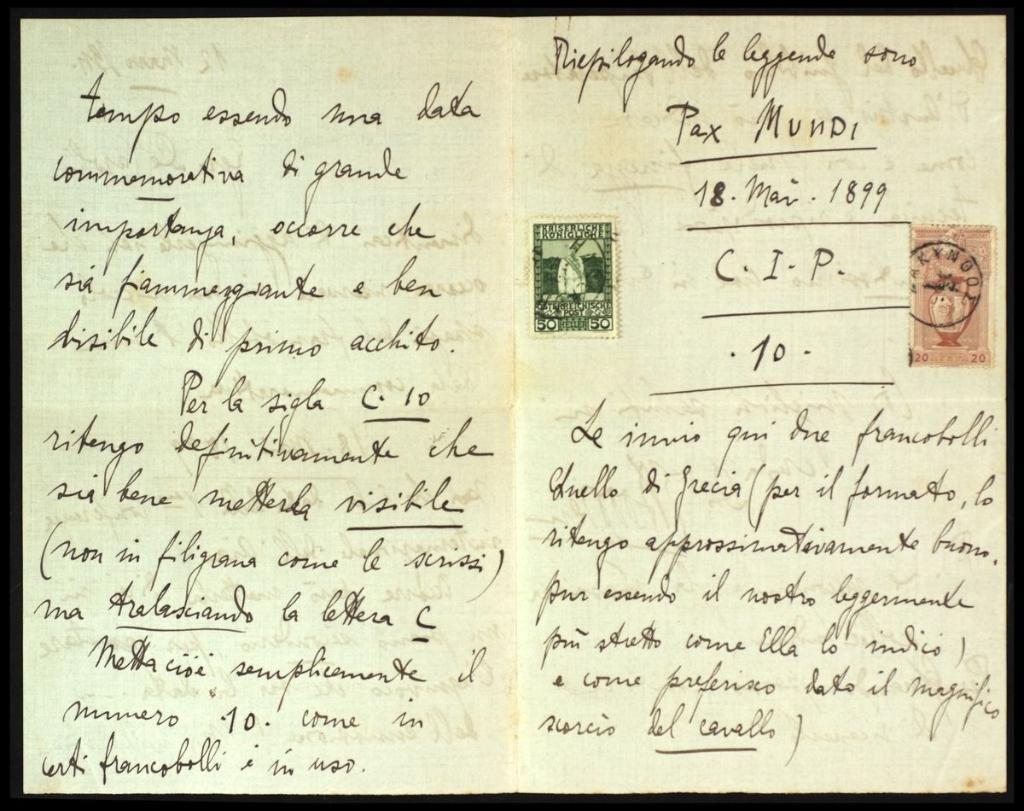 tempo essendo una data
commemorativa di grande
importanza, occorre che
sia fiammeggiante e ben
visibile di primo acchito.
Per la sigla C. 10
ritengo definitivamente che
sia bene metterla visibile
(non in filigrana come le scrissi)
ma tralasciando la lettera C
Metta cioè semplicemente il
numero .10. come in
certi francobolli è in uso.
Riepilogando le leggende sono
Pax MUNDI
18. Mai. 1899
C. I. P.
.10.
KAISERLICHE
KÖNIGLICHE
ÖSTERREICHISCHE
POST
50 HELLER 50
20 20
Le invio qui due francobolli
Quello di Grecia (per il formato, lo
ritengo approssimativamente buono,
pur essendo il nostro leggermente
più stretto come Ella lo indicò)
e come preferisco dato il magnifico
scorcio del cavallo)